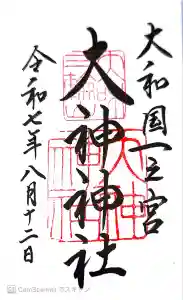 大和国一之宮
大神神社
令和七年八月十二日
CamScanner でスキャン